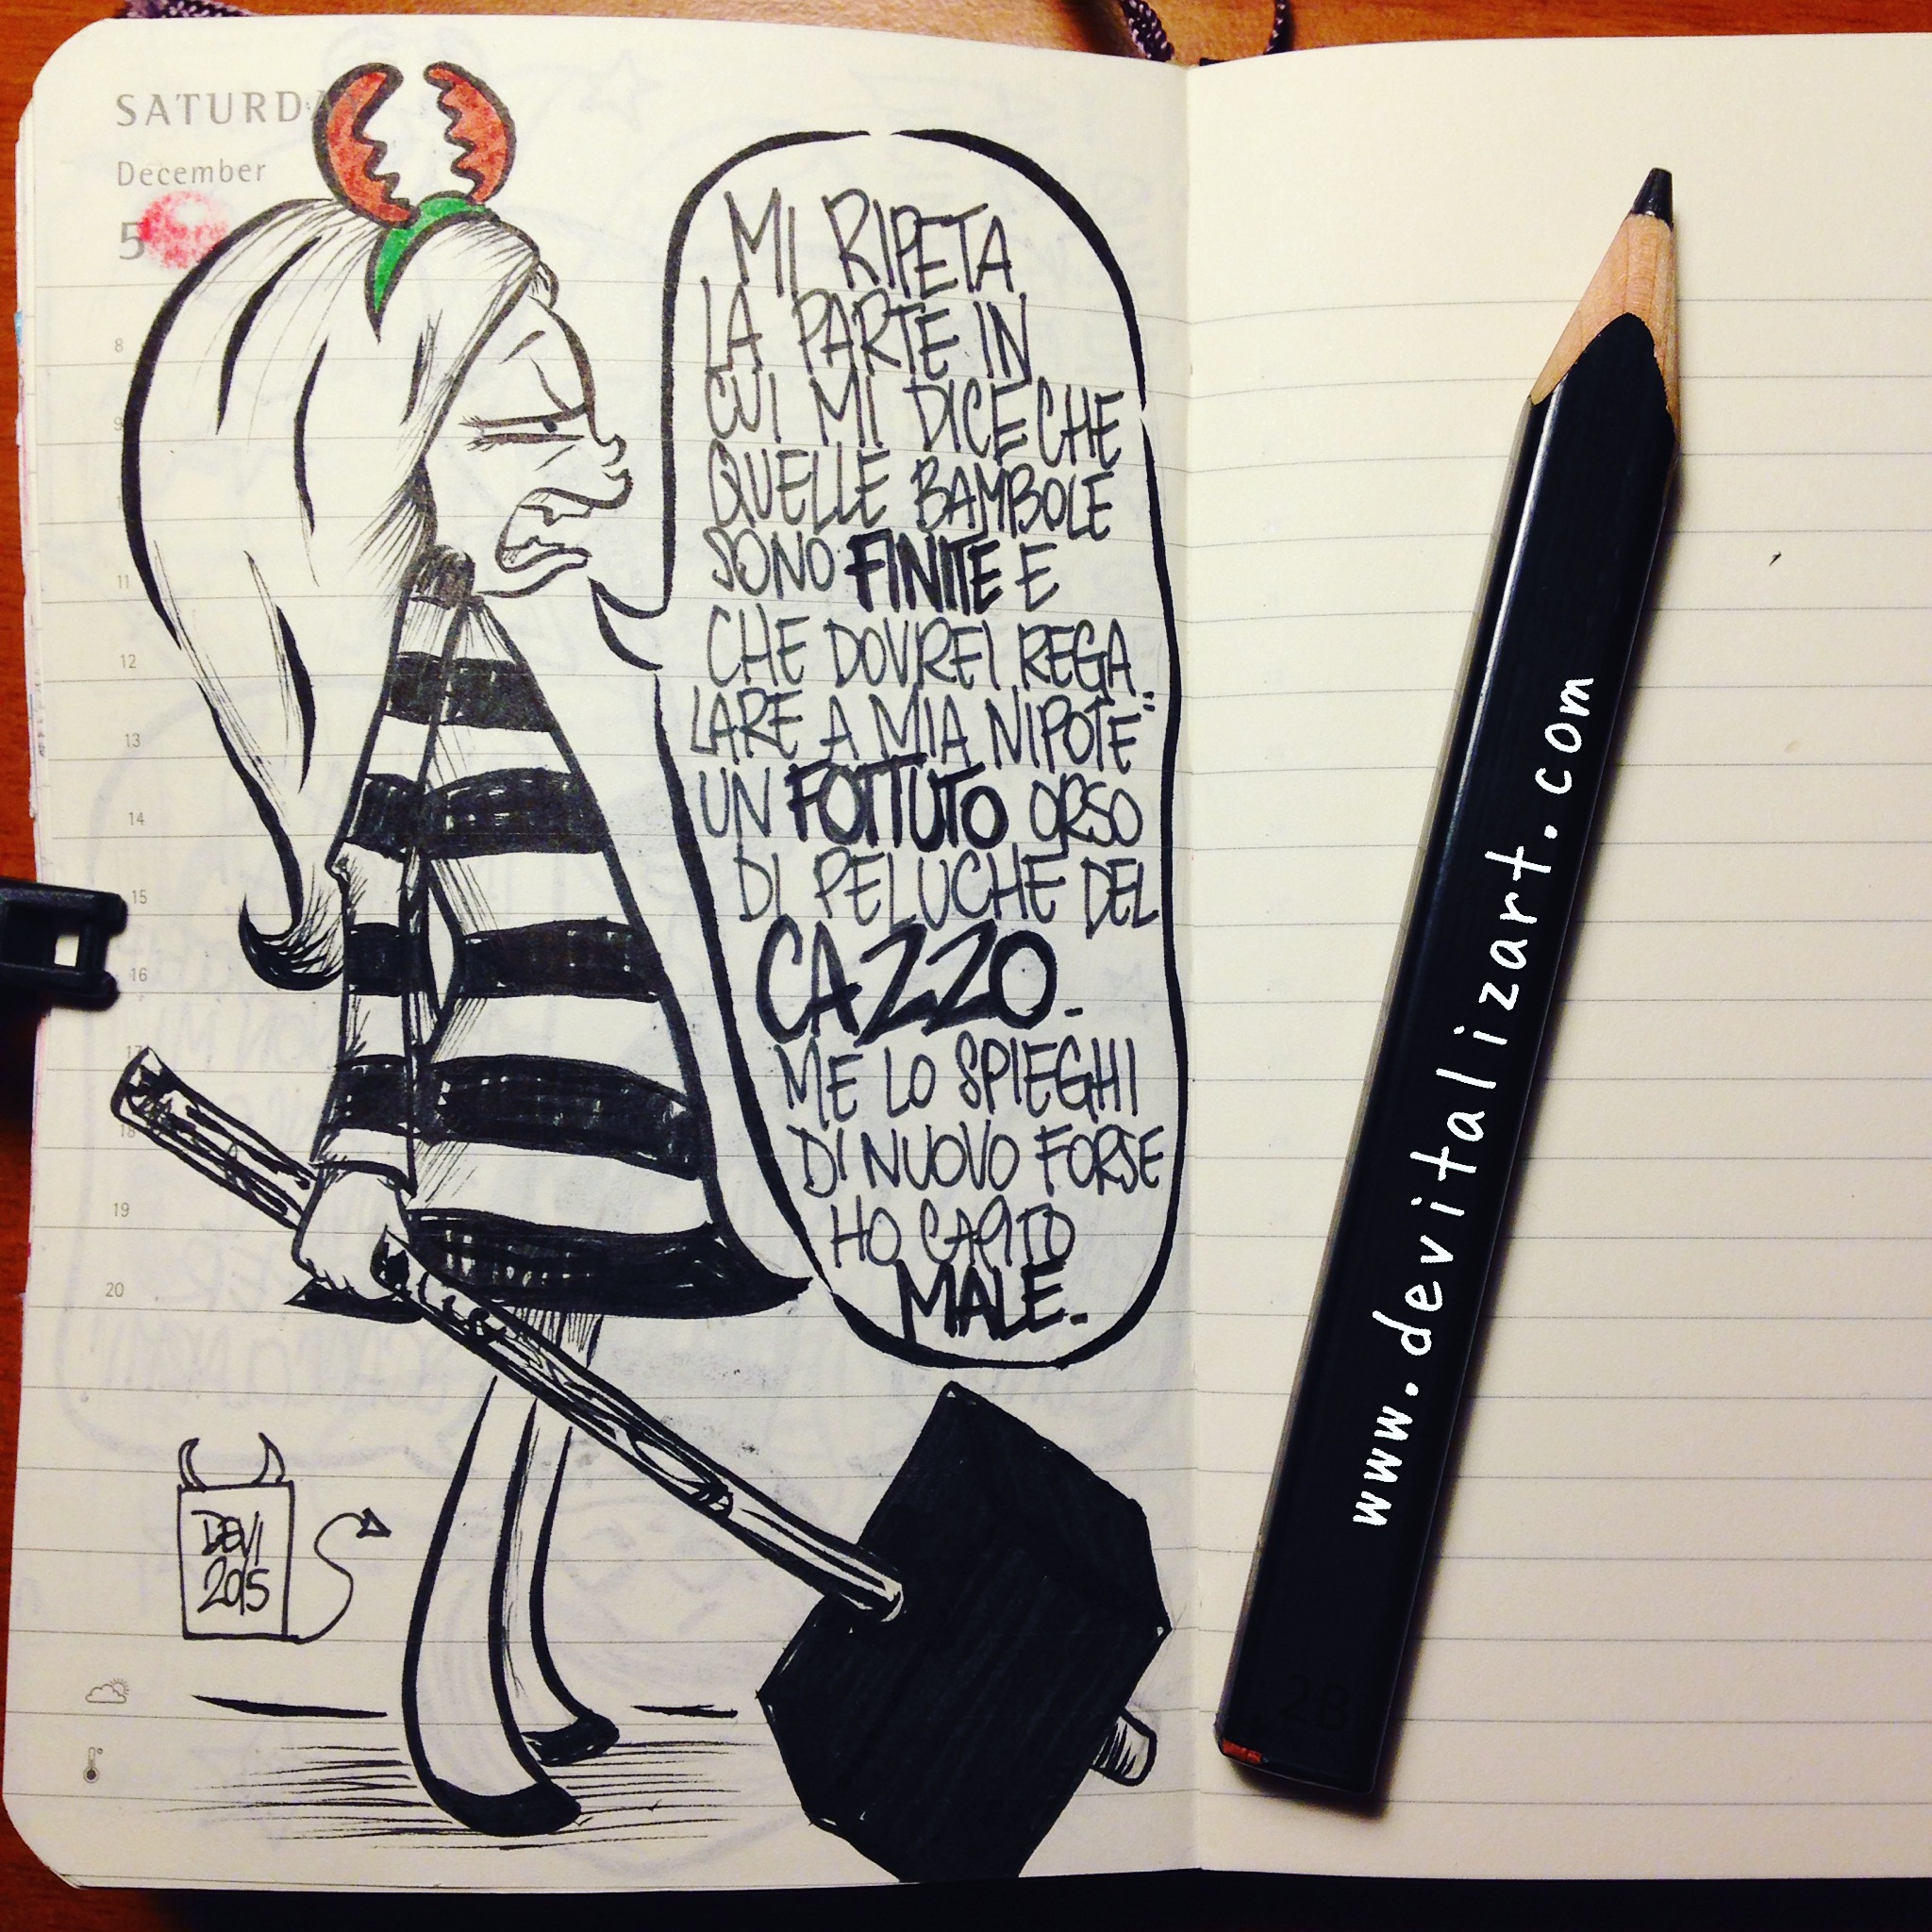 SATURDA
December
5
8
9
11
12
13
14
15
16
17
18
19
20
MI RIPETA
LA PARTE IN
CUI MI DICE CHE
QUELLE BAMBOLE
SONO FINITE E
CHE DOVREI REGA
LARE A MIA NIPOTE"
UN FOTTUTO ORSO
DI PELUCHE DEL
CAZZO.
ME LO SPIEGHI
DI NUOVO FORSE
HO CAPITO
MALE.
DEVI
2015
www.devitalizart.com
2B